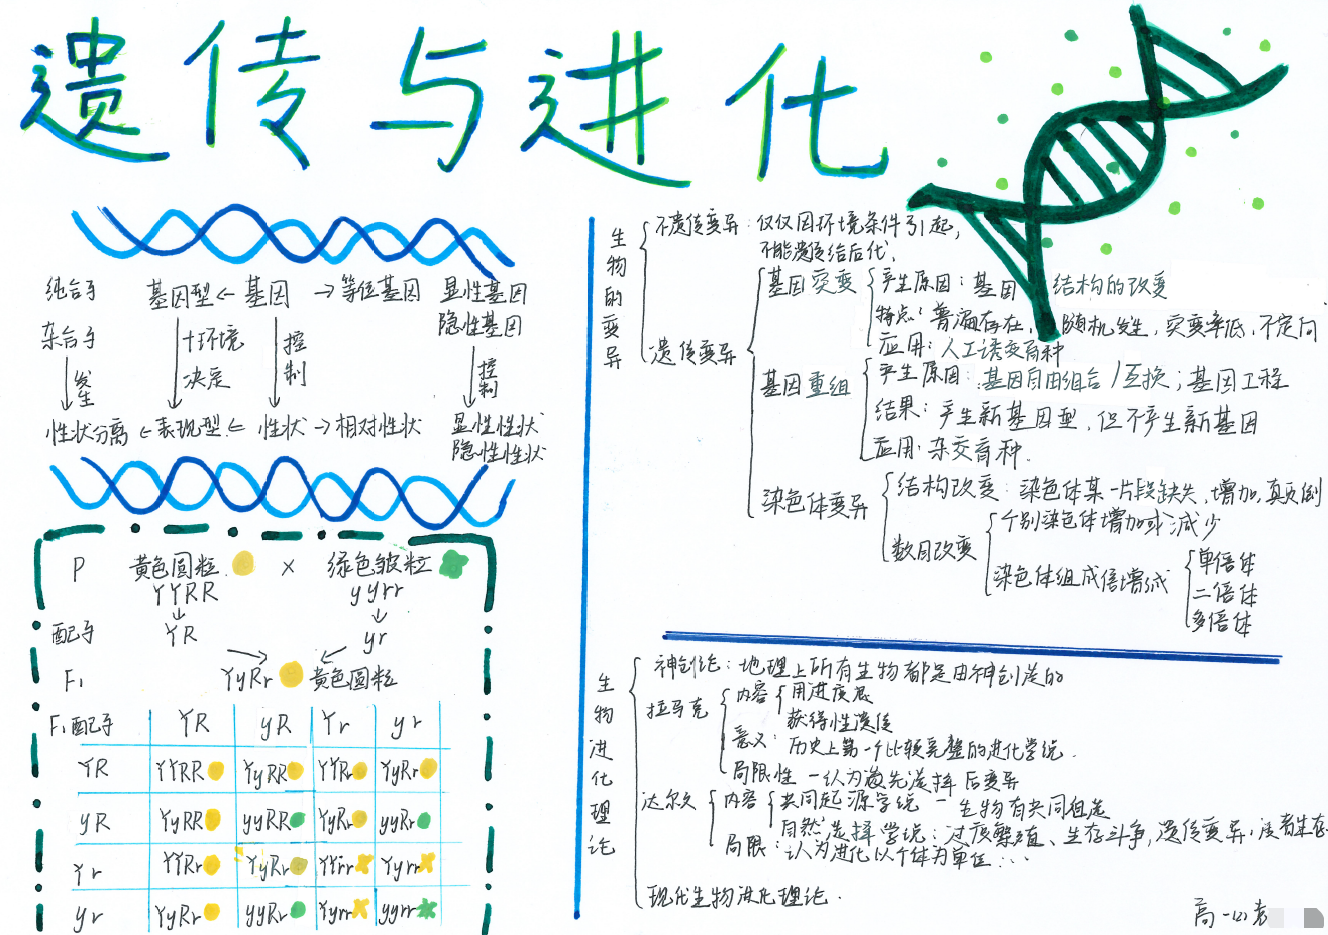 遗传与进化
纯合子 基因型 ← 基因 → 等位基因 显性基因
隐性基因
杂合子 +环境 控制
发生 决定 控制
性状分离 ← 表现型 ← 性状 → 相对性状 显性性状
隐性性状
P 黄色圆粒 × 绿色皱粒
YYRR yyrr
配子 YR yr
F₁ YyRr 黄色圆粒
F₁配子 YR yR Yr yr
YR YYRR YyRR YYRr YyRr
yR YyRR yyRR YyRr yyRr
Yr YYRr YyRr YYrr Yyrr
yr YyRr yyRr Yyrr yyrr
生物的变异
不遗传变异：仅仅因环境条件引起，
不能遗传给后代.
遗传变异
基因突变
产生原因：基因 结构的改变
特点：普遍存在， 随机发生，突变率低，不定向
应用：人工诱变育种
基因重组
产生原因：基因自由组合/互换；基因工程
结果：产生新基因型，但不产生新基因
应用：杂交育种.
染色体变异
结构改变：染色体某一片段缺失，增加，真reverse倒
数目改变
个别染色体增加或减少
染色体组成倍增减
单倍体
二倍体
多倍体
生物进化理论
神创论：地理上所有生物都是由神创造的
拉马克
内容 用进废退
获得性遗传
意义：历史上第一个比较完整的进化学说.
局限性—认为 先选择后变异
达尔文
内容 共同起源学说— 生物有共同祖先
自然选择学说：过度繁殖、生存斗争，遗传变异，适者生存
局限：认为进化以个体为单位...
现代生物进化理论.
高一四